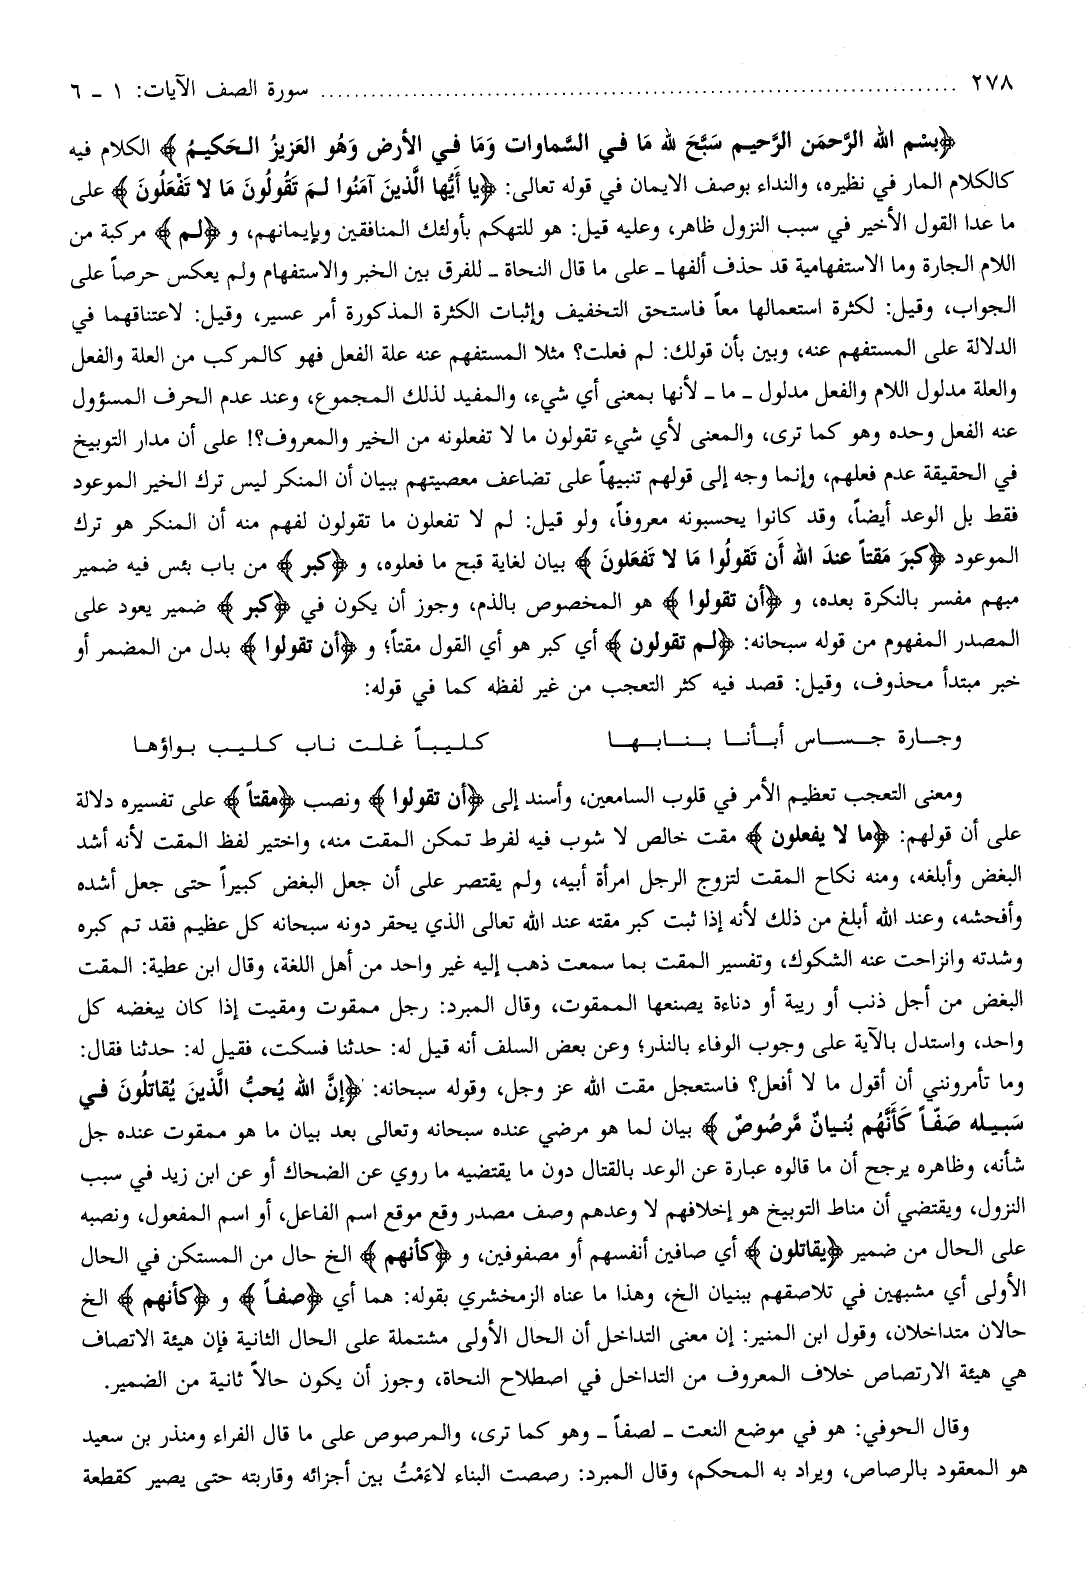 ٢٧٨ .......................................................................................... سورة الصف الآيات: ١ ـ ٦
﴿بسْم الله الرَّحمَن الرَّحيم سَبَّحَ لله مَا في السَّماوات وَمَا في الأرض وَهُو العَزيزُ الحَكيمُ﴾ الكلام فيه
كالكلام المار في نظيره، والنداء بوصف الايمان في قوله تعالى: ﴿يا أَيُّها الَّذينَ آمَنُوا لمَ تَقُولُونَ مَا لا تَفْعَلُونَ﴾ على
ما عدا القول الأخير في سبب النزول ظاهر، وعليه قيل: هو للتهكم بأولئك المنافقين وبإيمانهم، و ﴿لم﴾ مركبة من
اللام الجارة وما الاستفهامية قد حذف ألفها ـ على ما قال النحاة ـ للفرق بين الخبر والاستفهام ولم يعكس حرصاً على
الجواب، وقيل: لكثرة استعمالها معاً فاستحق التخفيف وإثبات الكثرة المذكورة أمر عسير، وقيل: لاعتناقهما في
الدلالة على المستفهم عنه، وبين بأن قولك: لم فعلت؟ مثلا المستفهم عنه علة الفعل فهو كالمركب من العلة والفعل
والعلة مدلول اللام والفعل مدلول ـ ما ـ لأنها بمعنى أي شيء، والمفيد لذلك المجموع، وعند عدم الحرف المسؤول
عنه الفعل وحده وهو كما ترى، والمعنى لأي شيء تقولون ما لا تفعلونه من الخير والمعروف؟! على أن مدار التوبيخ
في الحقيقة عدم فعلهم، وإنما وجه إلى قولهم تنبيهاً على تضاعف معصيتهم ببيان أن المنكر ليس ترك الخير الموعود
فقط بل الوعد أيضاً، وقد كانوا يحسبونه معروفاً، ولو قيل: لم لا تفعلون ما تقولون لفهم منه أن المنكر هو ترك
الموعود ﴿كبرَ مَقتاً عندَ الله أَن تَقولُوا مَا لا تَفعَلونَ﴾ بيان لغاية قبح ما فعلوه، و ﴿كبر﴾ من باب بئس فيه ضمير
مبهم مفسر بالنكرة بعده، و ﴿أن تقولوا﴾ هو المخصوص بالذم، وجوز أن يكون في ﴿كبر﴾ ضمير يعود على
المصدر المفهوم من قوله سبحانه: ﴿لم تقولون﴾ أي كبر هو أي القول مقتاً؛ و ﴿أن تقولوا﴾ بدل من المضمر أو
خبر مبتدأ محذوف، وقيل: قصد فيه كثر التعجب من غير لفظه كما في قوله:
وجـارة جـسـاس أبـأنـا بـنـابـهـا كـليـبـاً غـلت نـاب كـلـيـب بـواؤهـا
ومعنى التعجب تعظيم الأمر في قلوب السامعين، وأسند إلى ﴿أن تقولوا﴾ ونصب ﴿مقتاً﴾ على تفسيره دلالة
على أن قولهم: ﴿ما لا يفعلون﴾ مقت خالص لا شوب فيه لفرط تمكن المقت منه، واختير لفظ المقت لأنه أشد
البغض وأبلغه، ومنه نكاح المقت لتزوج الرجل امرأة أبيه، ولم يقتصر على أن جعل البغض كبيراً حتى جعل أشده
وأفحشه، وعند الله أبلغ من ذلك لأنه إذا ثبت كبر مقته عند الله تعالى الذي يحقر دونه سبحانه كل عظيم فقد تم كبره
وشدته وانزاحت عنه الشكوك، وتفسير المقت بما سمعت ذهب إليه غير واحد من أهل اللغة، وقال ابن عطية: المقت
البغض من أجل ذنب أو ريبة أو دناءة يصنعها الممقوت، وقال المبرد: رجل ممقوت ومقيت إذا كان يبغضه كل
واحد، واستدل بالآية على وجوب الوفاء بالنذر؛ وعن بعض السلف أنه قيل له: حدثنا فسكت، فقيل له: حدثنا فقال:
وما تأمرونني أن أقول ما لا أفعل؟ فاستعجل مقت الله عز وجل، وقوله سبحانه: ﴿إنَّ الله يُحبُّ الَّذينَ يُقاتلُونَ في
سَبيله صَفّاً كَأَنَّهُم بُنيانٌ مَّرصُوصٌ﴾ بيان لما هو مرضي عنده سبحانه وتعالى بعد بيان ما هو ممقوت عنده جل
شأنه، وظاهره يرجح أن ما قالوه عبارة عن الوعد بالقتال دون ما يقتضيه ما روي عن الضحاك أو عن ابن زيد في سبب
النزول، ويقتضي أن مناط التوبيخ هو إخلافهم لا وعدهم وصف مصدر وقع موقع اسم الفاعل، أو اسم المفعول، ونصبه
على الحال من ضمير ﴿يقاتلون﴾ أي صافين أنفسهم أو مصفوفين، و ﴿كأنهم﴾ الخ حال من المستكن في الحال
الأولى أي مشبهين في تلاصقهم ببنيان الخ، وهذا ما عناه الزمخشري بقوله: هما أي ﴿صفاً﴾ و ﴿كأنهم﴾ الخ
حالان متداخلان، وقول ابن المنير: إن معنى التداخل أن الحال الأولى مشتملة على الحال الثانية فإن هيئة الاتصاف
هي هيئة الارتصاص خلاف المعروف من التداخل في اصطلاح النحاة، وجوز أن يكون حالاً ثانية من الضمير.
وقال الحوفي: هو في موضع النعت ـ لصفاً ـ وهو كما ترى، والمرصوص على ما قال الفراء ومنذر بن سعيد
هو المعقود بالرصاص، ويراد به المحكم، وقال المبرد: رصصت البناء لاءَمْتُ بين أجزائه وقاربته حتى يصير كقطعة